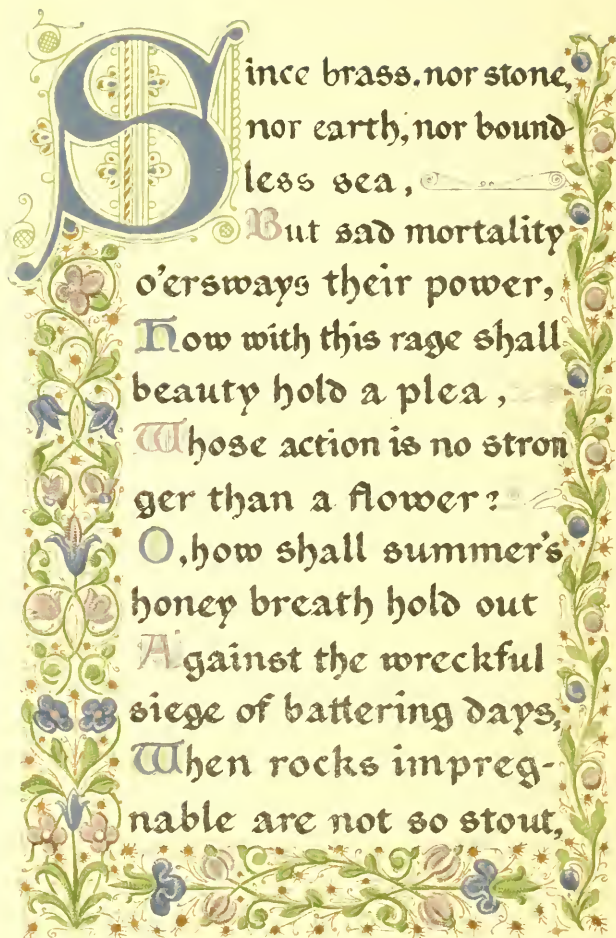 Since brass, nor stone,
nor earth, nor bound-
less sea,
But sad mortality
o'ersways their power,
How with this rage shall
beauty hold a plea,
Whose action is no stron
ger than a flower?
O, how shall summer's
honey breath hold out
Against the wreckful
siege of battering days,
When rocks impreg-
nable are not so stout,